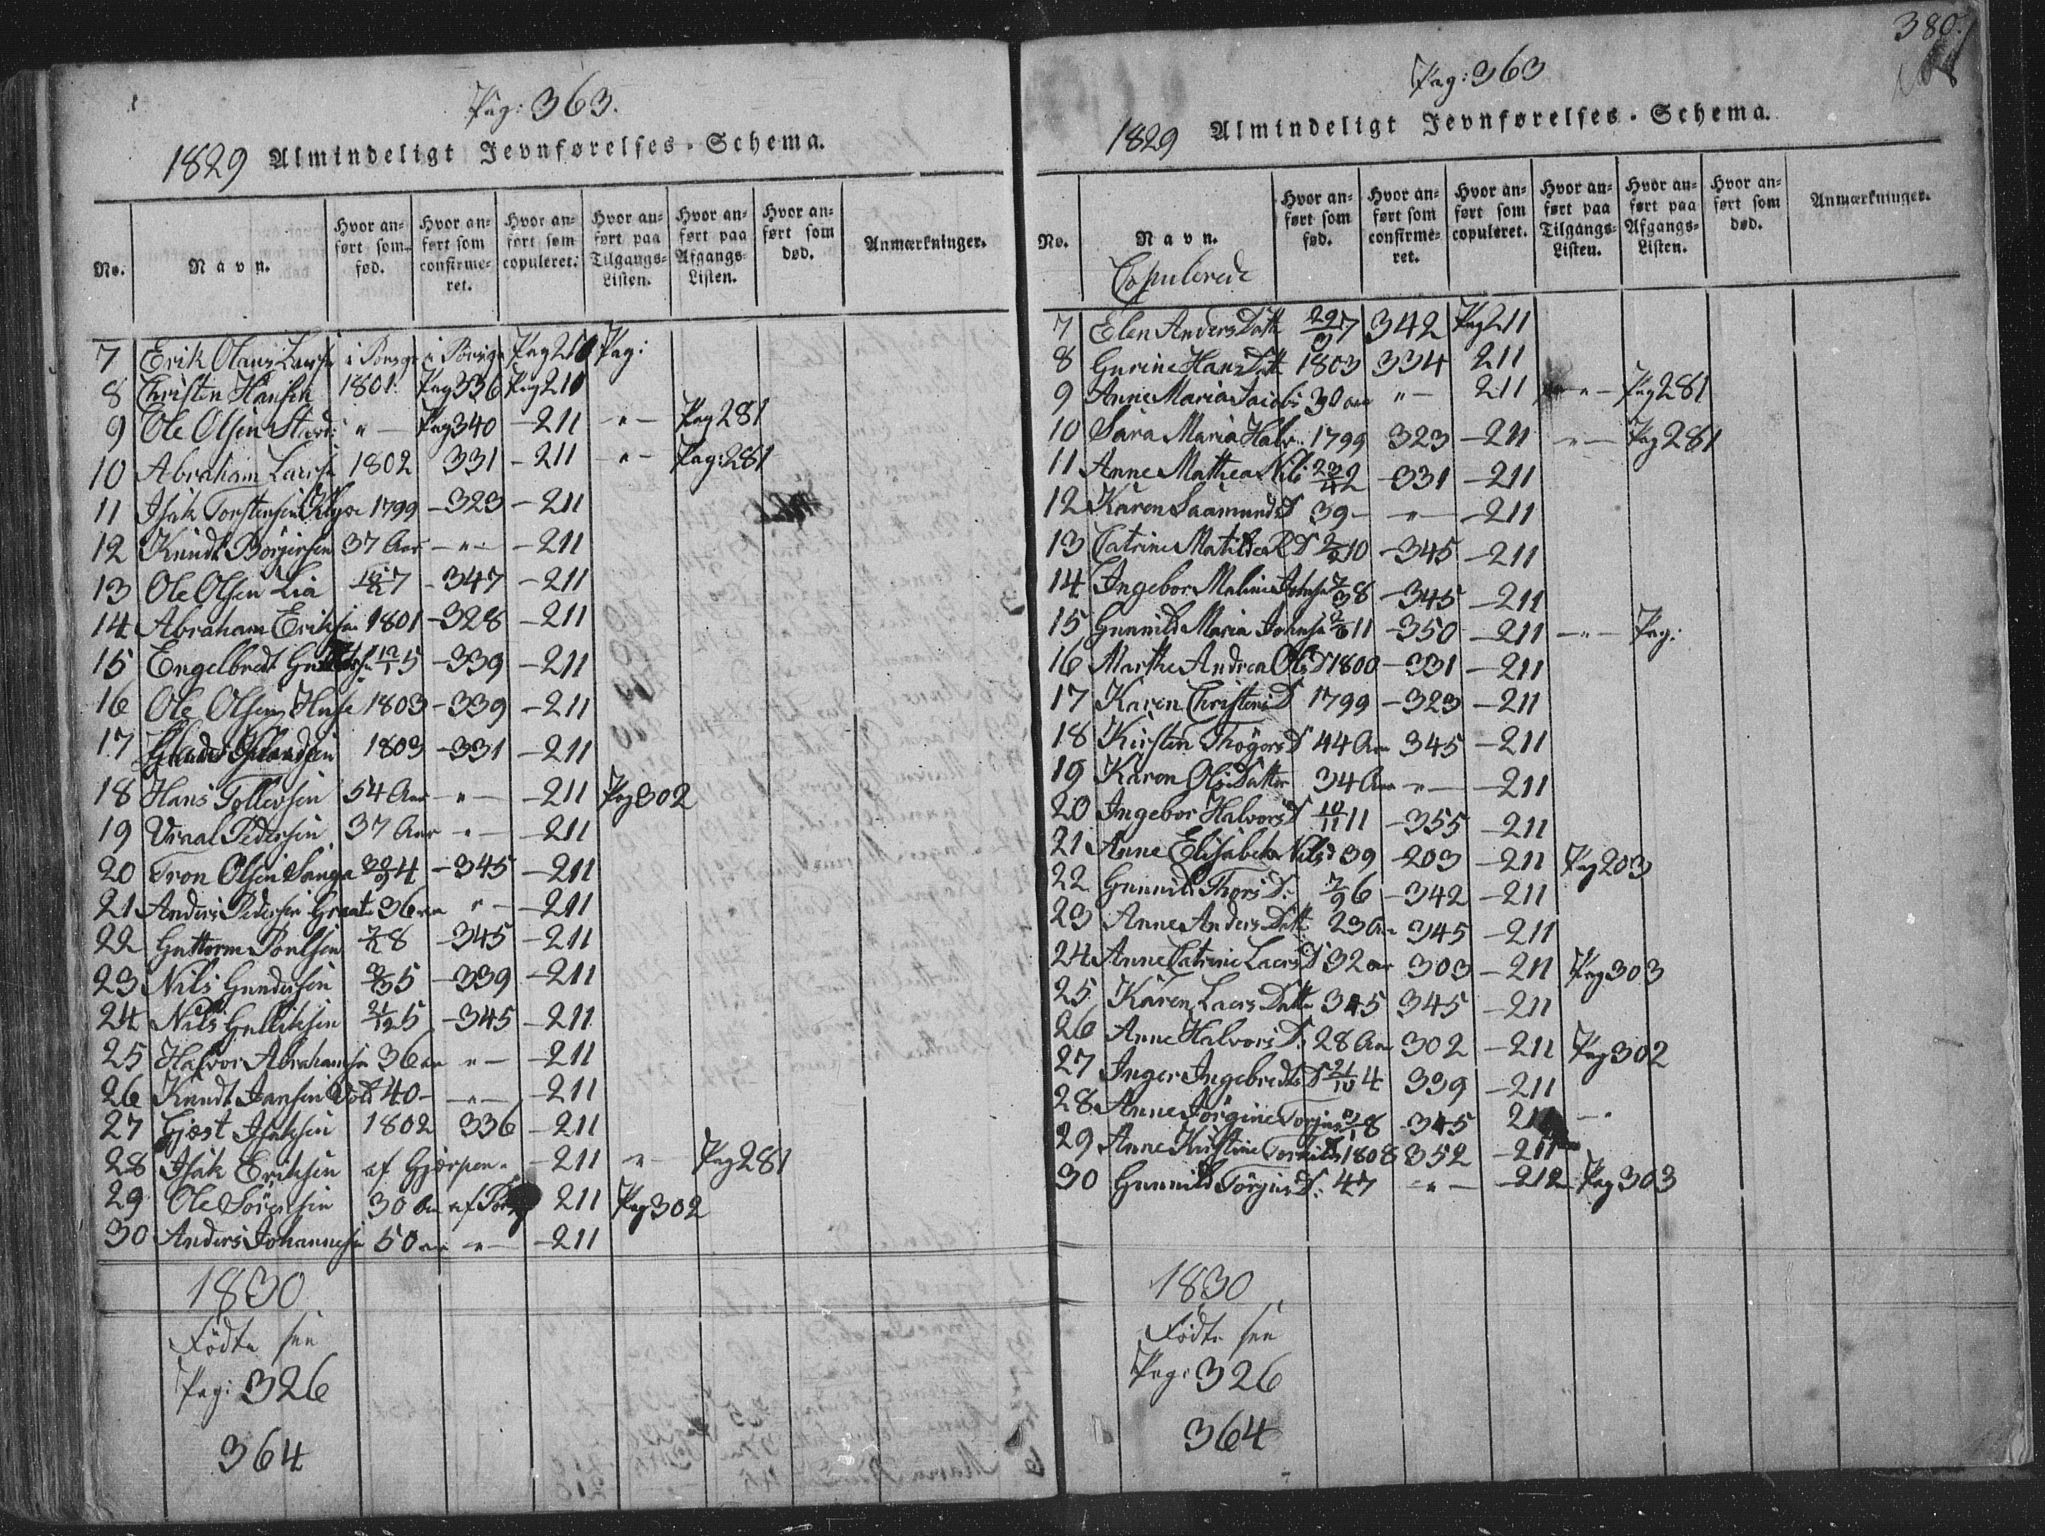 Pag: 363.
1829 Almindeligt Jevnførelses-Schema.
No. Navn. Hvor anført som fød. Hvor anført som confirmeret. Hvor anført som copuleret. Hvor anført paa Tilgangs-Listen. Hvor anført paa Afgangs-Listen. Hvor anført som død. Anmærkninger.
7 Erik Olaus Larsen i Porsgr i Porsgr Pag 210 Pag:
8 Christen Hansen 1801. Pag 336 Pag 210
9 Ole Olsen " — Pag 340 - 211 - " - Pag 281
10 Abraham Larsen 1802 331 - 211 - " - Pag: 281
11 Isak Torstensen 1799 - 323 - 211
12 Knudt Börjersen 37 Aar - " - - 211
13 Ole Olsen Lia 7 - 347 - 211
14 Abraham Eriksen 1801 - 328 - 211
15 Engelbredt 12/1 5 - 339 - 211
16 Ole Olsen Huse 1803 - 339 - 211
17 1803 - 331 - 211
18 Hans Tollevsen 54 Aar " - 211 Pag 302
19 Vraal Pedersen 37 Aar " - 211
20 Tron Olsen 4 - 345 - 211
21 Anders Pedersen 36 aar " - 211
22 Guttorm Poulsen 8 - 345 - 211
23 Nils Gundersen 5 - 339 - 211
24 Nils Gullichsen 21/12 5 - 345 - 211
25 Halvor Abrahamsen 36 aar " - - 211
26 Knudt Jansen 40 - - " - - 211
27 Gjøst Isaksen 1802 336 - 211
28 Isak Eriksen af Gjerpen. - 211 " - Pag 281
29 Ole Sörensen 30 Aar af 211 Pag 302
30 Anders Johannesen 50 aar " - - 211
1830
Födte see
Pag: 326
364
380.
Pag: 363
1829 Almindeligt Jevnførelses-Schema.
No. Navn. Hvor anført som fød. Hvor anført som confirmeret. Hvor anført som copuleret. Hvor anført paa Tilgangs-Listen. Hvor anført paa Afgangs-Listen. Hvor anført som død. Anmærkninger.
Copulerede
7 Elen Anders Datt 29/3 7 342 Pag 211
8 Gurine Hans Datt 1803 334 211
9 Anne Maria Jacobs 30 aar " - 211 " - Pag 281
10 Sara Maria Halv 1799 323 - 211 - " - Pag 281
11 Anne Mathea Nils 2 - 331 - 211
12 Karen Saamunds D 39 - - " - - 211
13 Catrine Matilda 10 - 345 - 211
14 Ingebor Malene Johns 8 - 345 - 211
15 Gunnild Maria Johns 11 - 350 - 211 - " - Pag:
16 Marthe Andrea Ols D 1800 - 331 - 211
17 Karen Christens D 1799 - 323 - 211
18 Kirsten Thögers D 44 Aar 345 - 211
19 Karen Ols Datter 34 Aar " - - 211
20 Ingebor Halvors D 10/11 11 - 355 - 211
21 Anne Elisabeth Nils D 39 - 203 - 211 Pag 203
22 Gunnild Thors D: 7/9 6 - 342 - 211
23 Anne Anders Datt 23 Aar 345 - 211
24 Anne Catrine Laers D 32 aar 303 - 211 Pag 303
25 Karen Laers Datt 345 345 - 211
26 Anne Halvors D: 28 Aar 302 - 211 Pag 302
27 Inger Ingebredts D 21/10 4 339 - 211
28 Anne Jörgine 8 - 345
29 Anne Kirstine 1808 352 - 211
30 Gunnild Törjus D: 47 - " - - 212 - Pag 303
1830
Födte see
Pag: 326
364